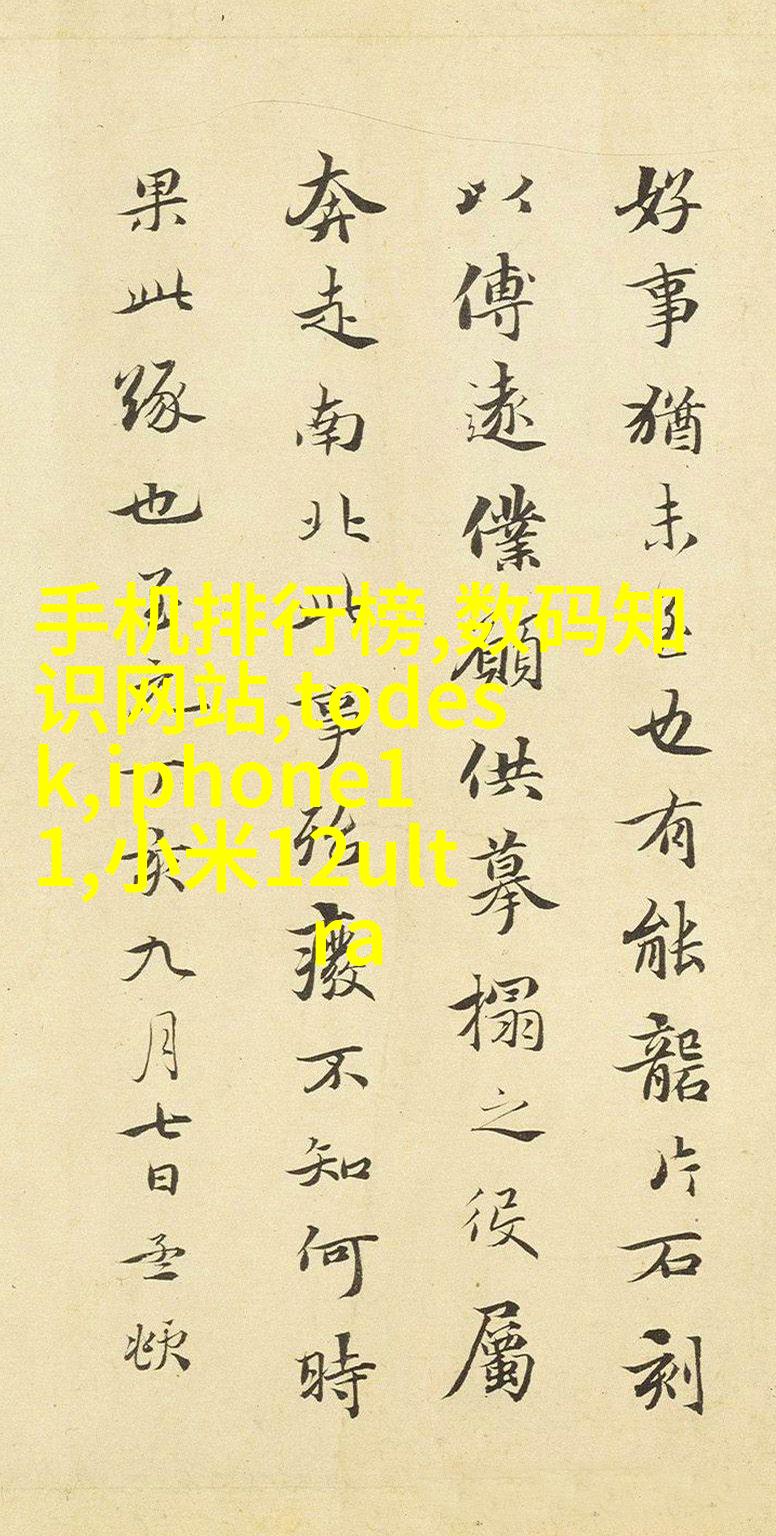 好事猶未也有能礱片石刻
以傳遠僕願供摹搨之役屬
奔走南北此事殆廢不知何時
果此緣也至元丁亥九月七日孟頫
手机排行榜,数码知
识网站,todes
k,iphone1
1,小米12ult
ra